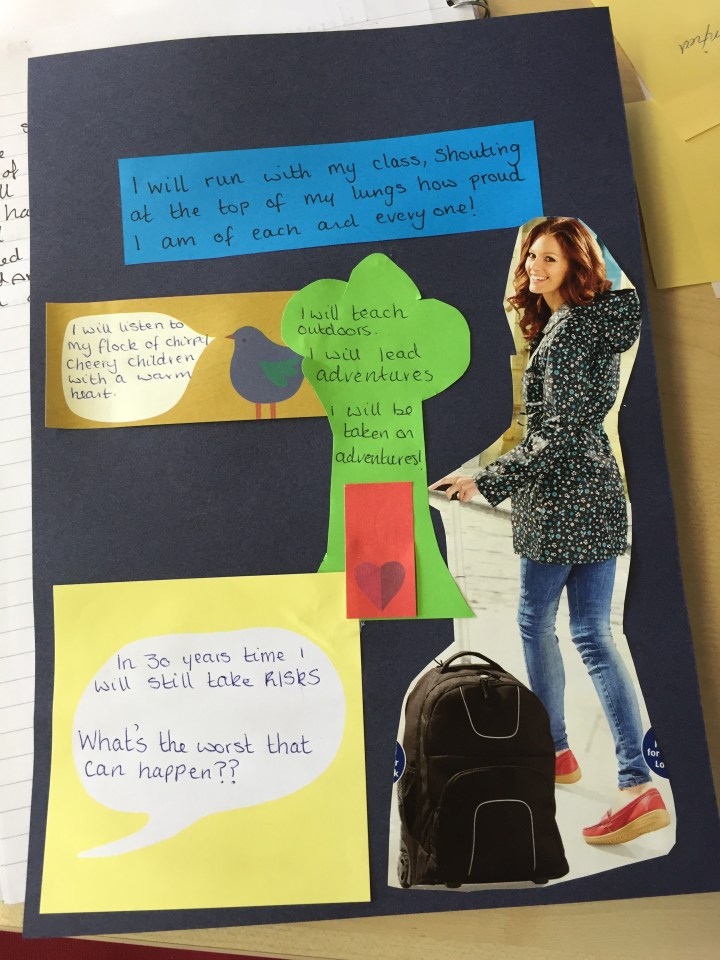 I will run with my class, shouting
at the top of my lungs how proud
I am of each and every one!
I will listen to
my flock of chirpy
cheery children
with a warm
heart.
I will teach
outdoors.
I will lead
adventures
I will be
taken on
adventures!
In 30 years time I
will still take RISKS
What's the worst that
can happen??
for
Lo
of
ha